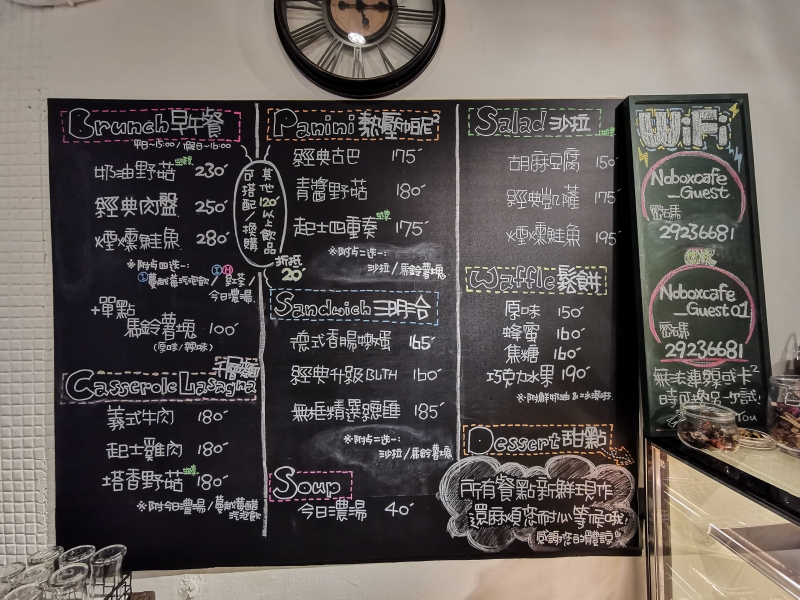 Brunch 早午餐
平日~15:00/假日~16:00
奶油野菇 230
經典肉盤 250
煙燻鮭魚 280
※附點四選一:
今日濃湯
+單點
馬鈴薯塊 100
(原味/辣味)
Casserole Lasagna
義式牛肉 180
起士雞肉 180
塔香野菇 180
※附今日濃湯/蔓越莓醋
汽泡飲
其他120以上飲品
可搭配/換購
折抵
20
Panini 熱壓帕尼²
經典古巴 175
青醬野菇 180
起士四重奏 175
※附點二選一:
沙拉/馬鈴薯塊
Sandwich 三明治
德式香腸嫩蛋 165
經典升級BLTH 160
無框精選總匯 185
※附點二選一:
沙拉/馬鈴薯塊
Soup
今日濃湯 40
Salad 沙拉
胡麻豆腐 150
經典凱薩 175
煙燻鮭魚 195
Waffle 鬆餅
原味 150
蜂蜜 160
焦糖 160
巧克力水果 190
Dessert 甜點
所有餐點新鮮現作
還麻煩您耐心等候哦!
感謝您的體諒
WiFi
Noboxcafe
_Guest
密碼
29236681
OR
Noboxcafe
_Guest01
密碼
29236681
無法連線或卡²
時可換另一ㄍ試!
You